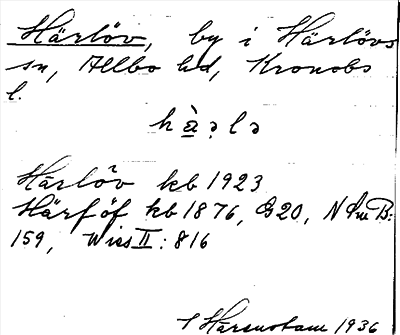 Härlöv, by i Härlövs
sn, Allbo hd, Kronobs
l.
hà̱ɘlɘ
Härlöv kb 1923
Härföf kb 1876, G20, NSmB:
159, Wies II: 816
1936